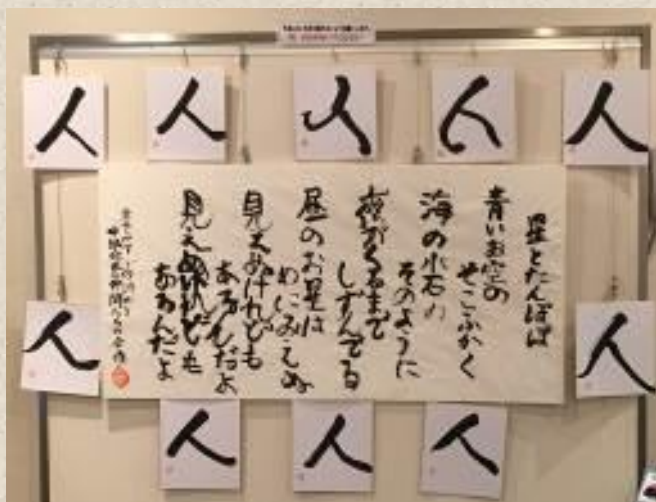 人
人
人
人
人
星とたんぽぽ
青いお空の
そこふかく
海の小石の
そのように
夜がくるまで
しずんでる
昼のお星は
めにみえぬ
見えぬけれども
あるんだよ
見えぬけれども
あるんだよ
人
人
人
人
人